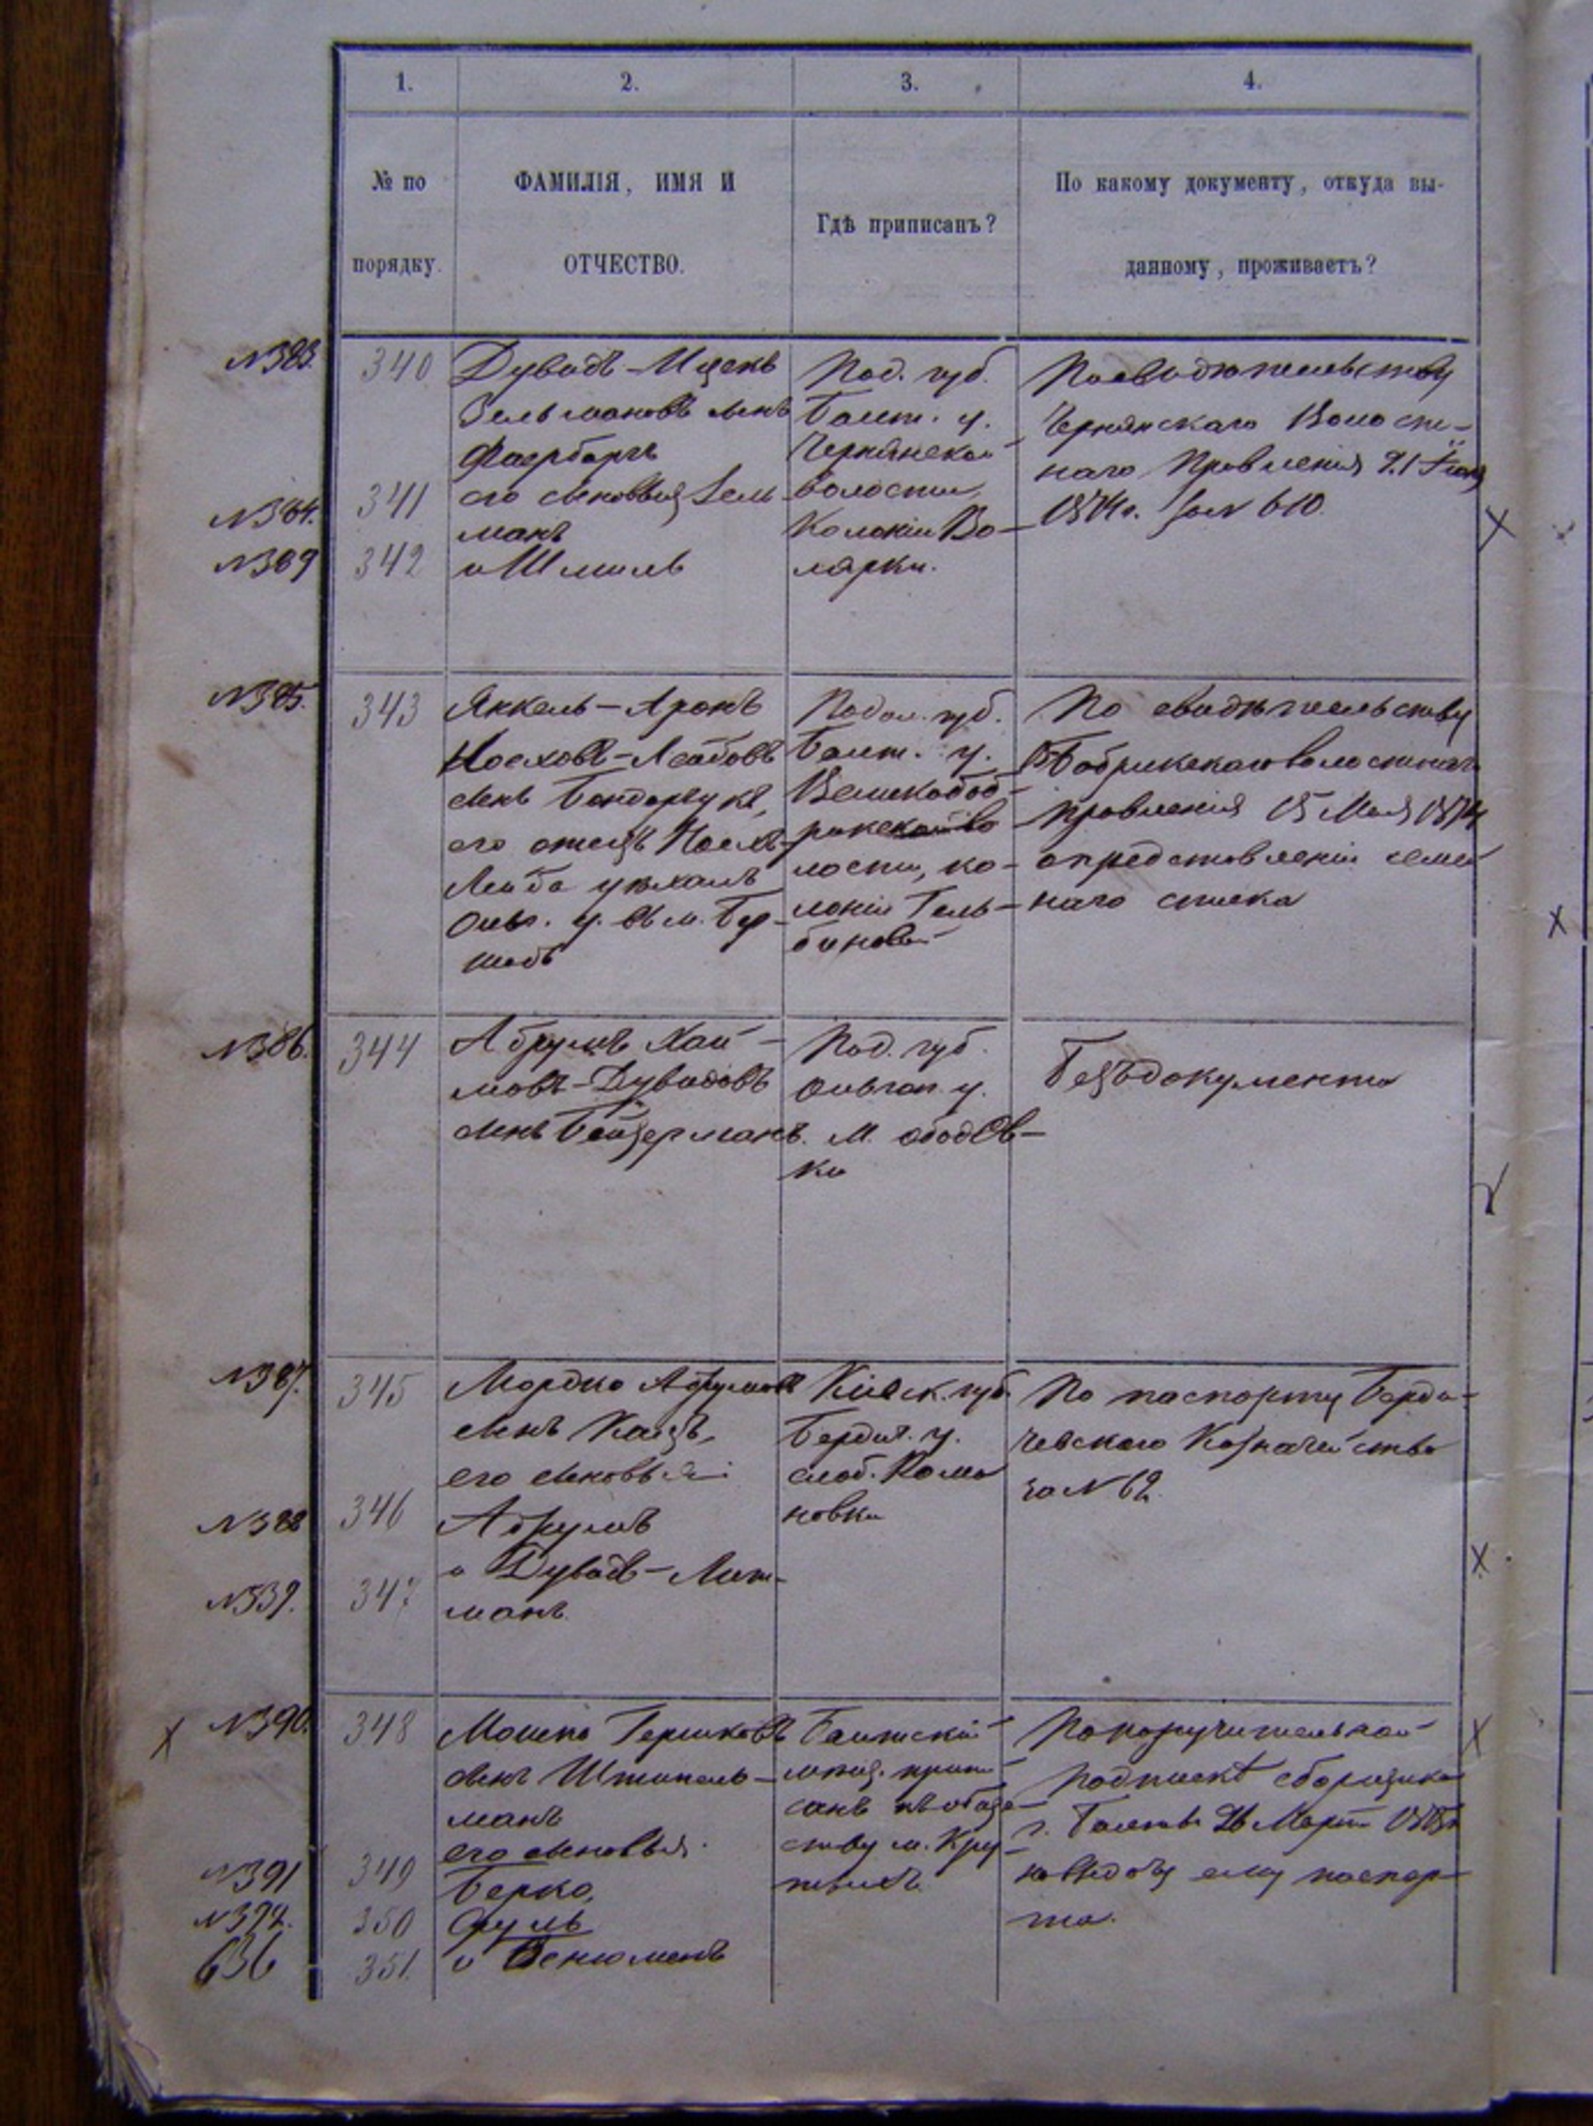 1. 2. 3. 4.
№ по
порядку.
ФАМИЛІЯ, ИМЯ И
ОТЧЕСТВО.
Гдѣ приписанъ?
По какому документу, откуда вы-
данному, проживаетъ?
№383.
340
Дувидъ-Ицекъ
Зельмановъ сынъ
Фаербергъ
№384.
341
его сыновья Зель
манъ
№389
342
и Шмиль
Под. губ.
Балт. у.
Чернянской
волости,
Колоніи Во-
лярки.
По свидѣтельству
Чернянскаго Волост-
наго Правленія 21
1874 г. за № 610
№385.
343
Янкель-Аронъ
Иосховъ-Лейбовъ
сынъ Бондарчукъ,
его отецъ Иосхъ-
Лейба уѣхалъ
Ольг. у. въ м. Бер-
шадь
Подол. губ.
Балт. у.
Великобоб-
рикской во
лости, ко-
лоніи Голь-
биновой
По свидѣтельству
Бобрикскаго волостнаго
Правленія 15 Мая 1874
о представленіи семей
наго списка
№386.
344
Абрумъ Хаи-
мовъ-Дувидовъ
сынъ Бейзерманъ.
Под. губ.
Ольгоп. у.
м. Ободов-
ки
Безъ документа
№387.
345
Мордко Абрумовъ
сынъ Кацъ,
его сыновья:
№388
346
Абрумъ
№539.
347
и Дувидъ-Лит-
манъ.
Кіевск. губ.
Бердич. у.
слоб. Рома
новки
По паспорту Берди-
чевскаго Казначейства
за № 62.
№390.
348
Мошко Гершковъ
сынъ Штипель-
манъ
его сыновья.
№391
349
Берко,
№392.
350
Сруль
636
351.
и Веніоминъ
Балтскій
мѣщ. припи
санъ къ обще-
ству м. Кру-
тыхъ
По поручительной
подпискѣ сборщика
г. Балты 26 Марта
на выдачу ему паспор-
та.